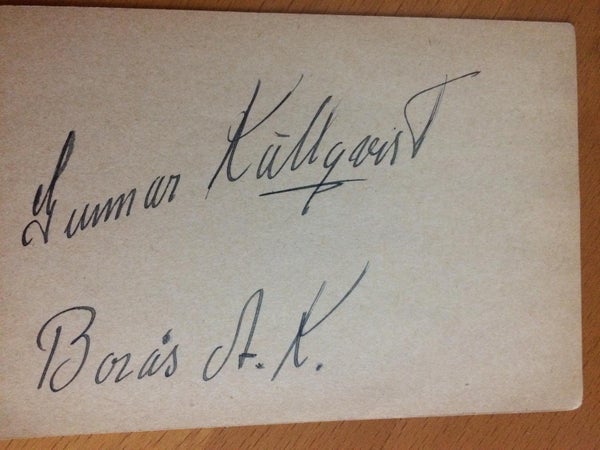 Gunnar Källqvist
Borås A.K.